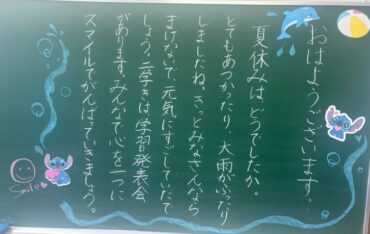 おはようございます。
夏休みは、どうでしたか。
とてもあつかったり、大雨がふったり
しましたね。きっとみなさんなら
まけないで、元気にすごしていたで
しょう。二学きは、学習発表会
があります。みんなで心を一つに
スマイルでがんばっていきましょう。
Smile